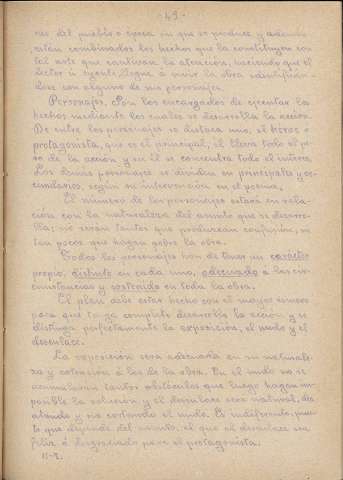 - 49 -
res del pueblo o época en que se produce, y además,
están combinados los hechos que la constituyen con
tal arte que cautivan la atención, haciendo que el
lector u oyente llegue á vivir la obra identificán-
dose con alguno de sus personajes.
Personajes. Son los encargados de ejecutar los
hechos mediante los cuales se desarrolla la acción.
De entre los personajes se destaca uno, el héroe o
protagonista, que es el principal, él lleva todo el pe-
so de la acción y en él se concentra todo el interés.
Los demás personajes se dividen en principales y se-
cundarios, según su intervención en el poema.
El número de los personajes estará en rela-
ción con la naturaleza del asunto que se desarro-
lla; no serán tantos que produzcan confusión, ni
tan pocos que hagan pobre la obra.
Todos los personajes han de tener un carácter
propio, distinto en cada uno, adecuado a las cir-
cunstancias y sostenido en toda la obra.
El plan debe estar hecho con el mayor esmero
para que tenga completo desarrollo la acción y se
distinga perfectamente la exposición, el nudo y el
desenlace.
La exposición será adecuada en su naturale-
za y extensión á las de la obra. En el nudo no se
acumularán tantos obstáculos que luego hagan im-
posible la solución y el desenlace será natural, des-
atando y no cortando el nudo. Es indiferente, pues-
to que depende del asunto, el que el desenlace sea
feliz ó desgraciado para el protagonista.